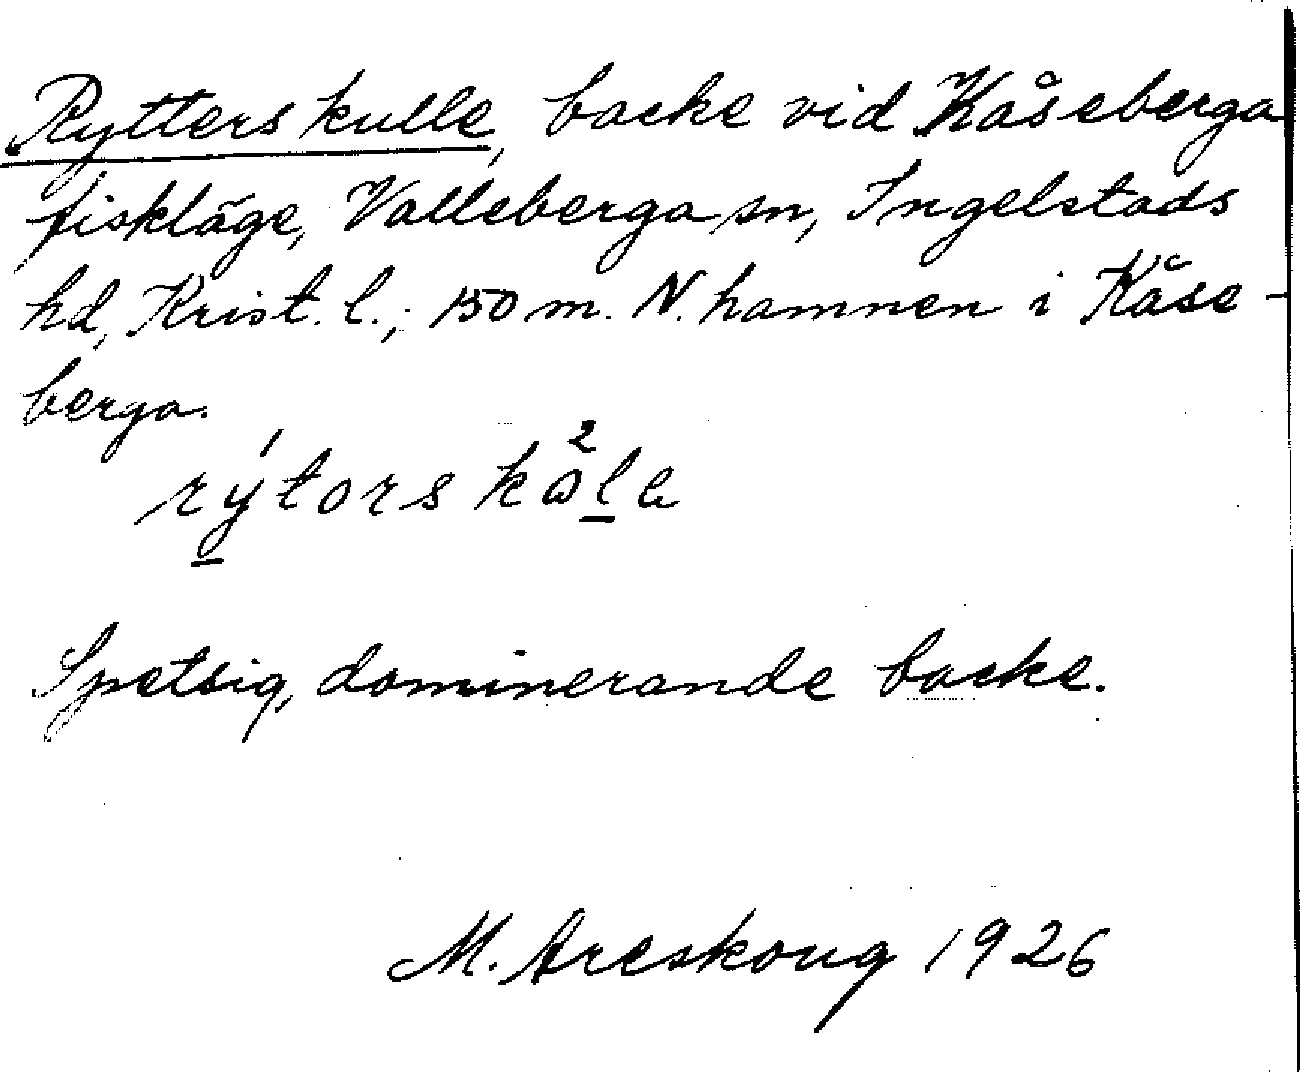 Rytterskulle, backe vid Kåseberga
fiskläge, Valleberga sn, Ingelstads
hd, Krist. l.; 150 m. N. hamnen i Kåse-
berga.
rýtorskåla
Spetsig, dominerande backe.
M. Areskoug 1926